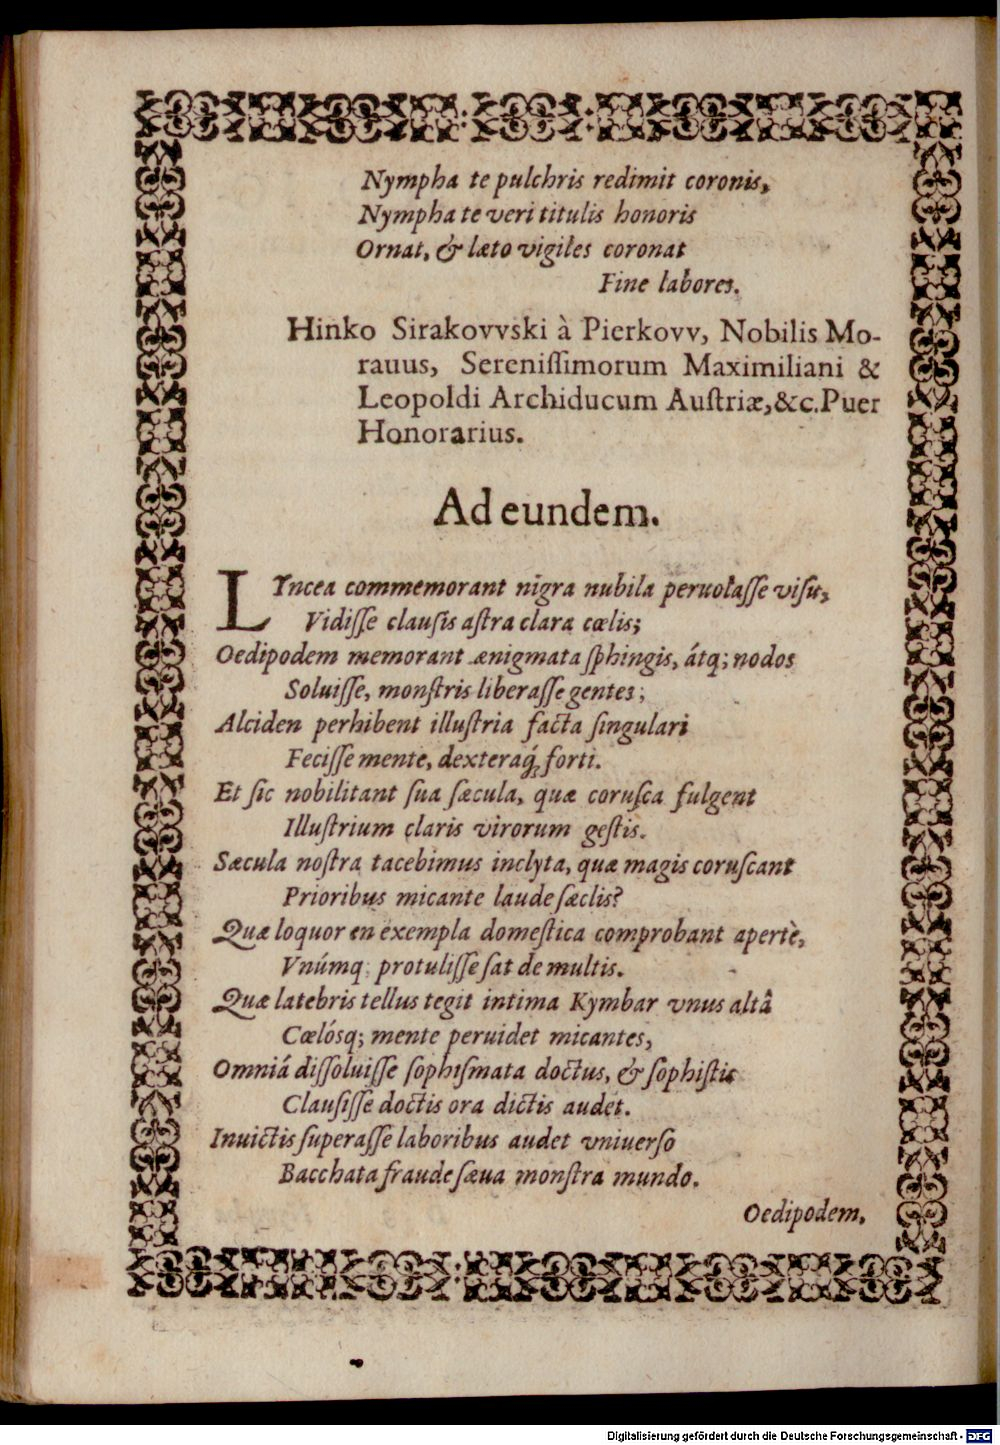 Nympha te pulchris redimit coronis,
Nympha te veri titulis honoris
Ornat, & læto vigiles coronat
Fine labores.
Hinko Sirakovvski à Pierkovv, Nobilis Mo-
rauus, Sereniſſimorum Maximiliani &
Leopoldi Archiducum Auſtriæ, &c. Puer
Honorarius.
Ad eundem.
LYncea commemorant nigra nubila peruolaſſe viſu,
Vidiſſe clauſis aſtra clara cœlis;
Oedipodem memorant ænigmata ſphingis, átq; nodos
Soluiſſe, monſtris liberaſſe gentes;
Alciden perhibent illuſtria facta ſingulari
Feciſſe mente, dexteraq́; forti.
Et ſic nobilitant ſua ſæcula, quæ coruſca fulgent
Illuſtrium claris virorum geſtis.
Sæcula noſtra tacebimus inclyta, quæ magis coruſcant
Prioribus micante laude ſæclis?
Quæ loquor en exempla domeſtica comprobant apertè,
Vnúmq; protuliſſe ſat de multis.
Quæ latebris tellus tegit intima Kymbar vnus altâ
Cœlósq; mente peruidet micantes,
Omniá diſſoluiſſe ſophiſmata doctus, & ſophiſtis
Clauſiſſe doctis ora dictis audet.
Inuictis ſuperaſſe laboribus audet vniuerſo
Bacchata fraude ſæua monſtra mundo.
Oedipodem,
Digitalisierung gefördert durch die Deutsche Forschungsgemeinschaft - DFG